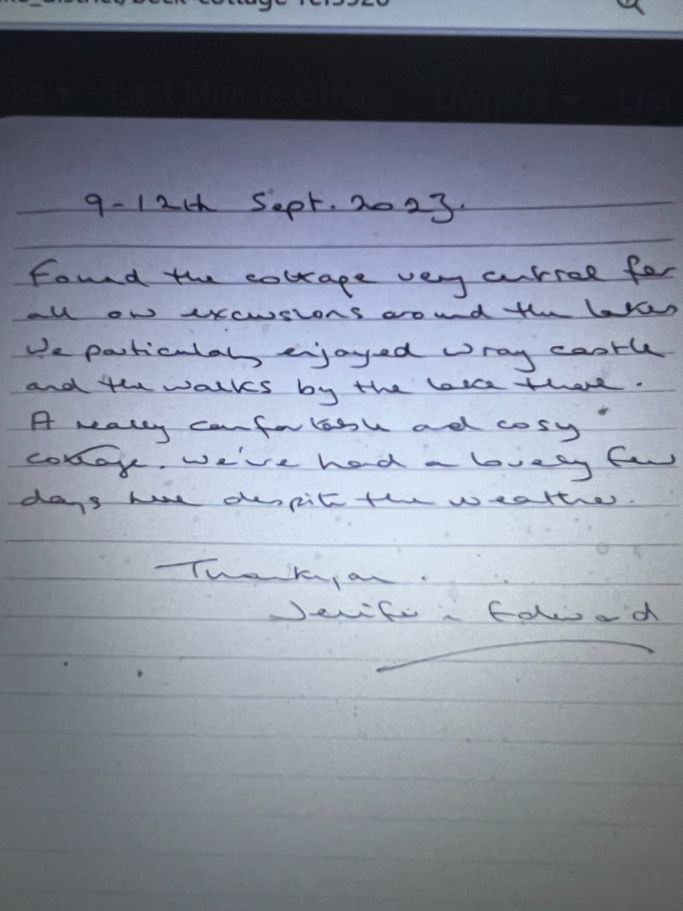 Last Minute Offers Owners List
9-12th Sept. 2023.
Found the cottage very central for
all our excursions around the lakes
We particularly enjoyed Wray castle
and the walks by the lake there.
A really comfortable and cosy
cottage. We've had a lovely few
days here despite the weather.
Thankyou.
Jenifer Edward